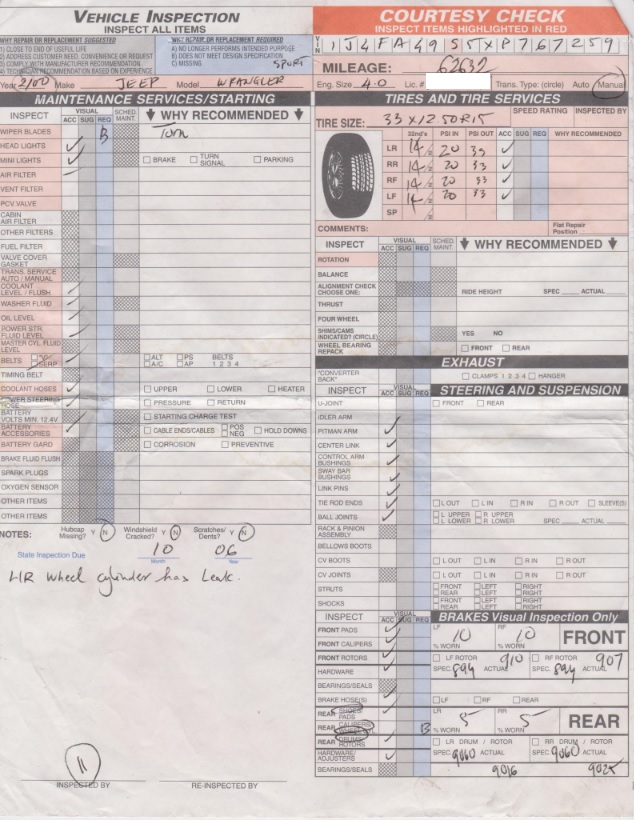 VEHICLE INSPECTION
INSPECT ALL ITEMS
WHY REPAIR OR REPLACEMENT SUGGESTED
1) CLOSE TO END OF USEFUL LIFE
2) ADDRESS CUSTOMER NEED, CONVENIENCE OR REQUEST
3) COMPLY WITH MANUFACTURER RECOMMENDATION
4) TECHNICIAN RECOMMENDATION BASED ON EXPERIENCE
WHY REPAIR OR REPLACEMENT REQUIRED
A) NO LONGER PERFORMS INTENDED PURPOSE
B) DOES NOT MEET DESIGN SPECIFICATION
C) MISSING
SPORT
Make JEEP Model WRANGLER
MAINTENANCE SERVICES/STARTING
INSPECT VISUAL ACC SUG REQ SCHED MAINT. WHY RECOMMENDED
WIPER BLADES B Torn
HEAD LIGHTS
MINI LIGHTS BRAKE TURN SIGNAL PARKING
AIR FILTER
VENT FILTER
PCV VALVE
CABIN AIR FILTER
OTHER FILTERS
FUEL FILTER
VALVE COVER GASKET
TRANS. SERVICE AUTO / MANUAL
COOLANT LEVEL / FLUSH
WASHER FLUID
OIL LEVEL
POWER STR. FLUID LEVEL
MASTER CYL. FLUID LEVEL
BELTS ALT PS BELTS
A/C AP 1 2 3 4
TIMING BELT
COOLANT HOSES UPPER LOWER HEATER
POWER STEERING HOSE PRESSURE RETURN
BATTERY VOLTS MIN. 12.4V STARTING CHARGE TEST
BATTERY ACCESSORIES CABLE ENDS/CABLES POS NEG HOLD DOWNS
BATTERY GARD CORROSION PREVENTIVE
BRAKE FLUID FLUSH
SPARK PLUGS
OXYGEN SENSOR
OTHER ITEMS
OTHER ITEMS
NOTES: Hubcap Missing? Y N Windshield Cracked? Y N Scratches/ Dents? Y N
State Inspection Due 10 06
Month Year
L/R wheel cylinder has leak.
11
INSPECTED BY RE-INSPECTED BY
COURTESY CHECK
INSPECT ITEMS HIGHLIGHTED IN RED
VIN 1J4FA49S5XP767259
MILEAGE: 62632
Eng. Size 4.0 Lic. # Trans. Type: (circle) Auto Manual
TIRES AND TIRE SERVICES
TIRE SIZE: 33 X 12.50R15 SPEED RATING INSPECTED BY
32nd's PSI IN PSI OUT ACC SUG REQ WHY RECOMMENDED
LR 14 20 33
RR 14 20 33
RF 14 20 33
LF 14 20 33
SP
COMMENTS: Flat Repair Position
INSPECT VISUAL ACC SUG REQ SCHED MAINT. WHY RECOMMENDED
ROTATION
BALANCE
ALIGNMENT CHECK CHOOSE ONE: RIDE HEIGHT SPEC ACTUAL
THRUST
FOUR WHEEL
SHIMS/CAMS INDICATED? (CIRCLE) YES NO
WHEEL BEARING REPACK FRONT REAR
EXHAUST
"CONVERTER BACK" CLAMPS 1 2 3 4 HANGER
INSPECT STEERING AND SUSPENSION
U-JOINT FRONT REAR
IDLER ARM
PITMAN ARM
CENTER LINK
CONTROL ARM BUSHINGS
SWAY BAR BUSHINGS
LINK PINS
TIE ROD ENDS L OUT L IN R IN R OUT SLEEVE(S)
BALL JOINTS L UPPER R UPPER
L LOWER R LOWER SPEC ACTUAL
RACK & PINION ASSEMBLY
BELLOWS BOOTS
CV BOOTS L OUT L IN R IN R OUT
CV JOINTS L OUT L IN R IN R OUT
STRUTS FRONT LEFT RIGHT
REAR LEFT RIGHT
SHOCKS FRONT LEFT RIGHT
REAR LEFT RIGHT
INSPECT VISUAL ACC SUG REQ BRAKES Visual Inspection Only
FRONT PADS LF 10 % WORN RF 10 % WORN FRONT
FRONT CALIPERS
FRONT ROTORS LF ROTOR RF ROTOR
HARDWARE SPEC. 894 ACTUAL 910 SPEC. 894 ACTUAL 907
BEARINGS/SEALS
BRAKE HOSE(S) LF RF REAR
REAR SHOES/ PADS LR 5 % WORN RR 5 % WORN REAR
REAR CALIPERS B
REAR DRUMS/ ROTORS LR DRUM / ROTOR RR DRUM / ROTOR
HARDWARE/ ADJUSTERS SPEC 9060 ACTUAL SPEC 9060 ACTUAL
BEARINGS/SEALS 9016 9025